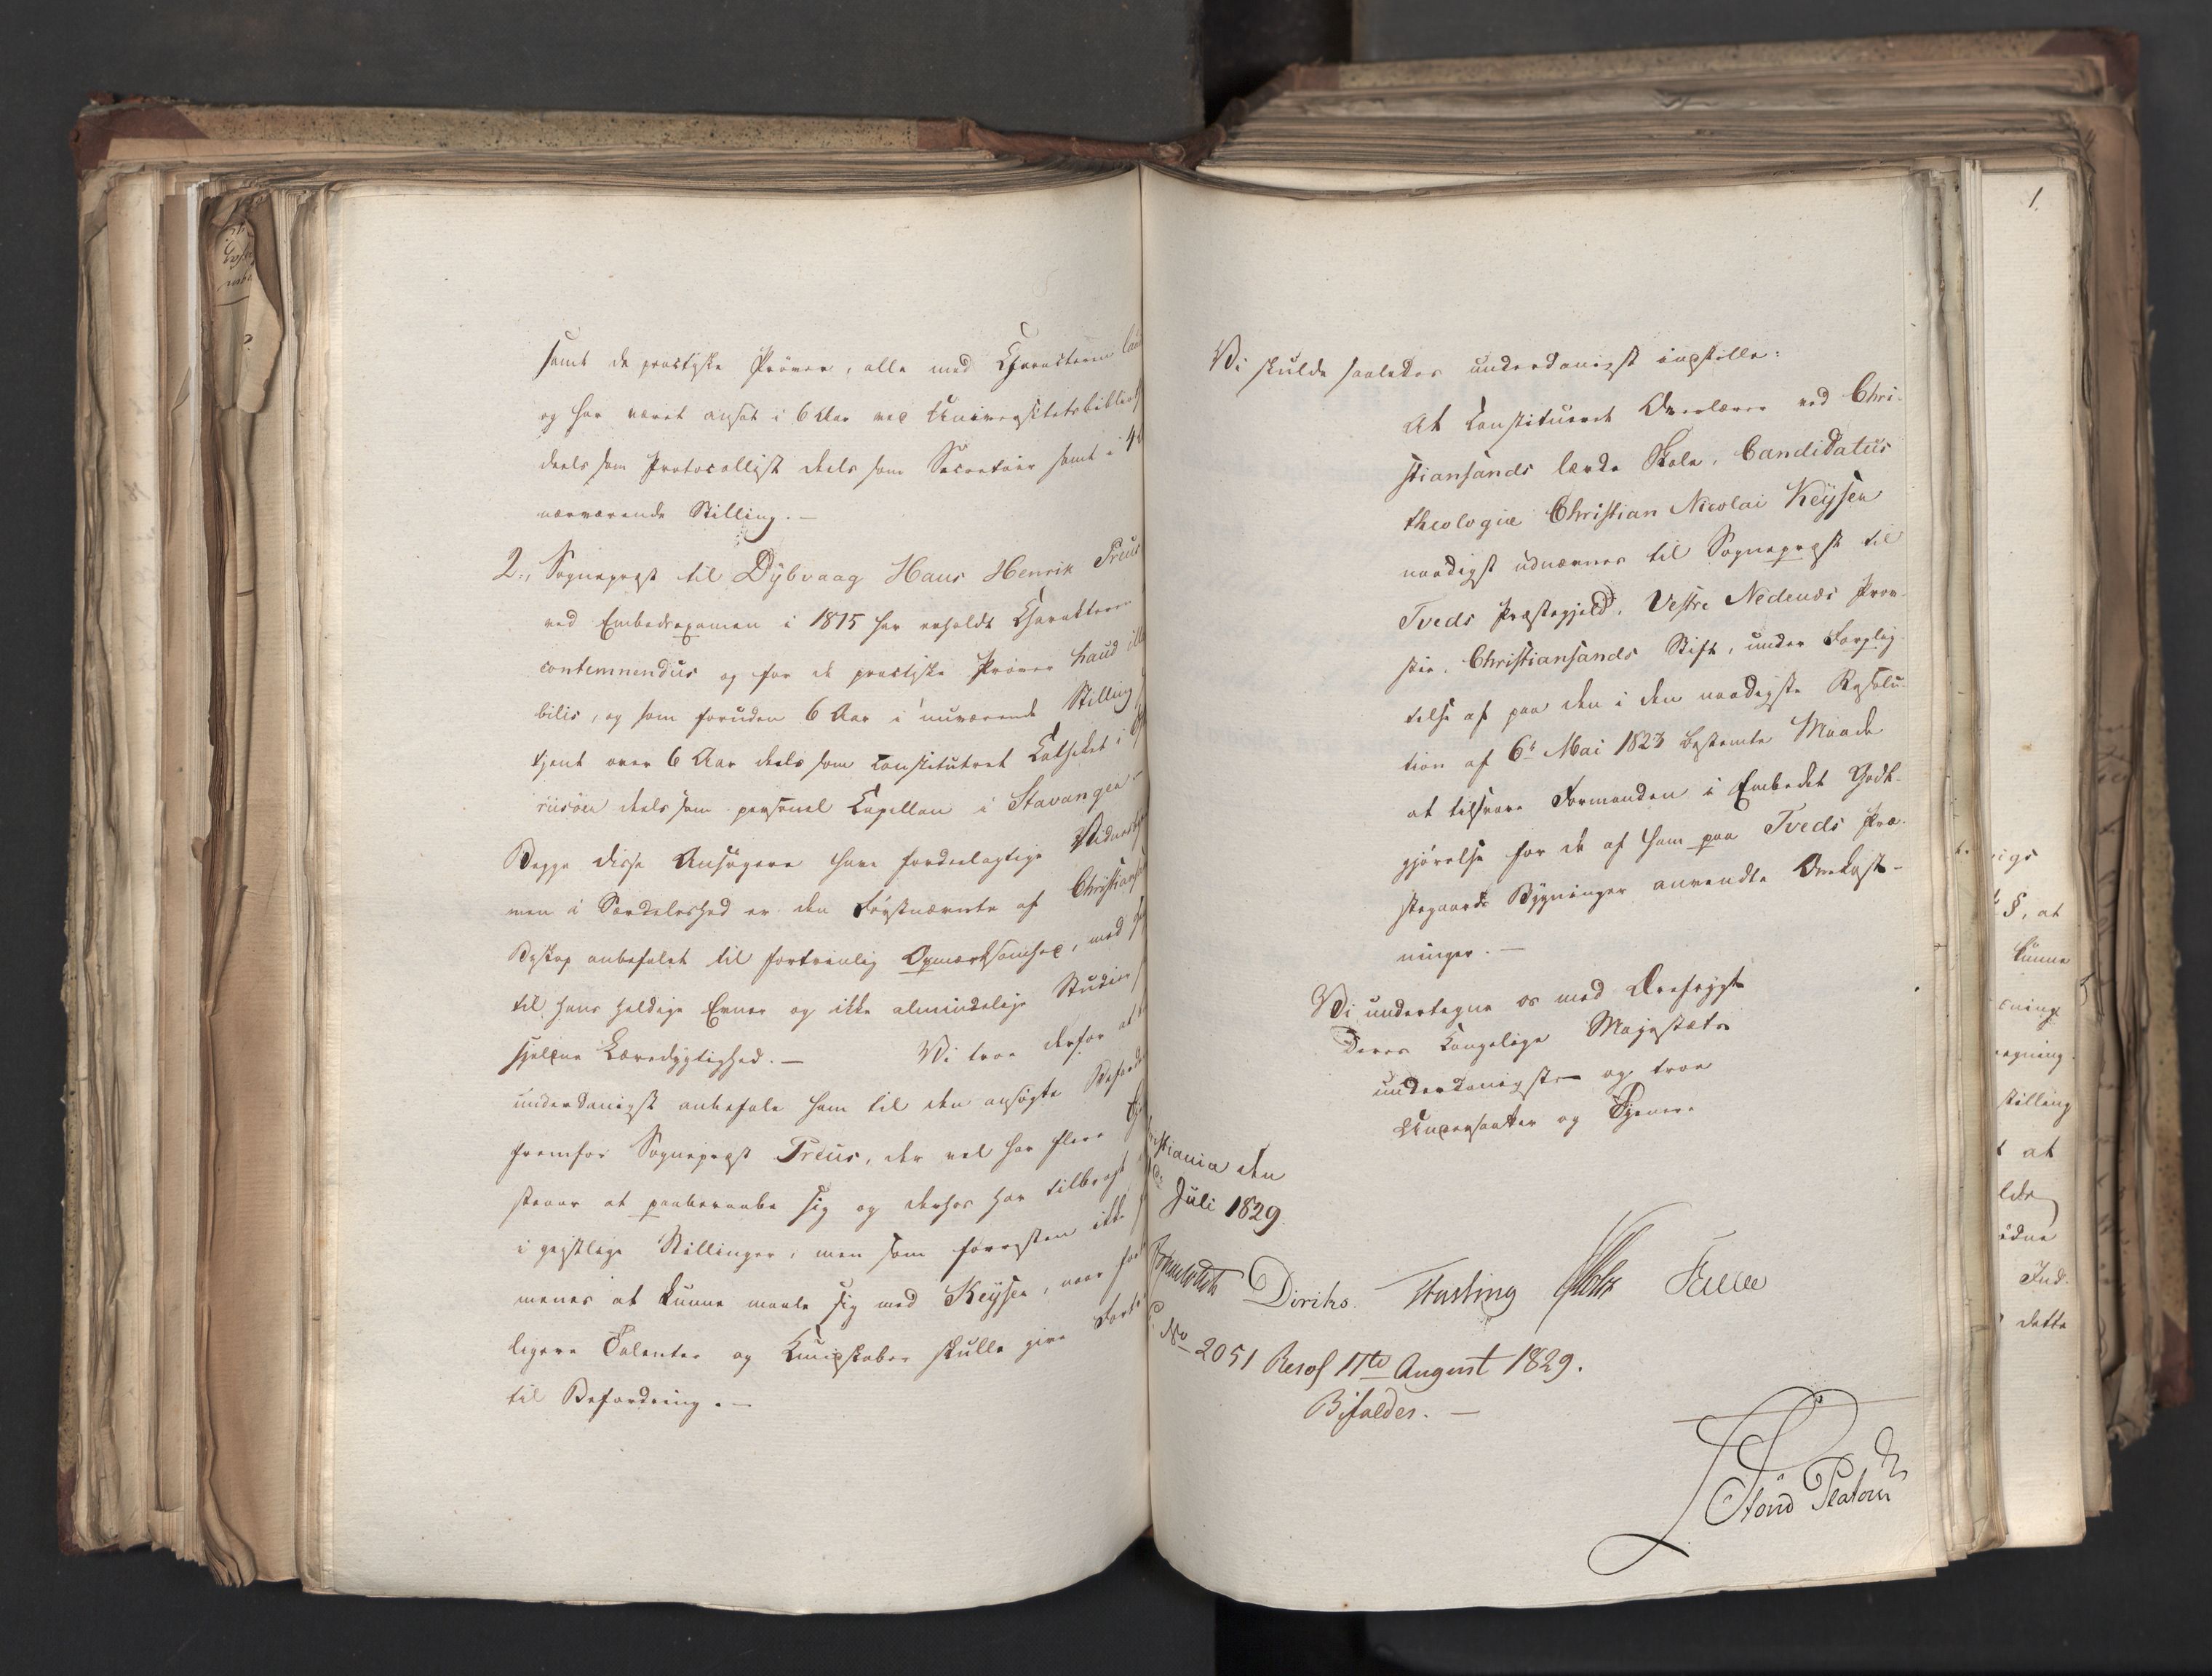 samt de practiske Prøver, alle med Charakteren
og har været ansat i 6 Aar ved Universitetsbiblioth
deels som Protocollist deels som Secretair samt i 4
nærværende Stilling. —
2., Sognepræst til Dybvaag Hans Henrik Treu
ved Embedsexamen i 1815 har erholdt Charakteren
contemnendus og for de practiske Prøver haud ill
bilis, og som foruden 6 Aar i nuværende Stilling
tjent over 6 Aar deels som constitueret Catechet i
riisøer deels som personel Capellan i Stavanger
Begge disse Ansøgere have fordeelagtige Vidnesby
men i Særdeleshed er den Førstnævnte af Christians
Biskop anbefalet til fortrinlig Opmærksomhed, med
til hans heldige Evner og ikke almindelige Studier
sjeldne Læredygtighed. — Vi troe derfor at
underdanigst anbefale ham til den ansøgte Beford
fremfor Sognepræst Treus, der vel har flere
steaar at paaberaabe sig og derhos har tilbragt
i geistlige Stillinger, men som forresten ikke
menes at kunne maale sig med Keysen, naar
ligere Talenter og Kundskaber skulle give Fort
til Befordring. —
Vi skulde saaledes underdanigst indstille:
At constitueret Overlærer ved Chri-
stiansands lærde Skole, Candidatus
theologiæ Christian Nicolai Keysen
naadigst udnævnes til Sognepræst til
Tveds Præstegjeld, Vestre Nedenæs Prov-
stie, Christiansands Stift, under Forplig-
telse af paa den i den naadigste Resolu-
tion af 6te Mai 1823 bestemte Maade
at tilsvare Formanden i Embedet Godt-
gjørelse for de af ham paa Tveds Præ-
stegaards Bygninger anvendte Omkost-
ninger. —
Vi undertegne os med Ærefrygt
Deres Kongelige Majestæts
underdanigste og troe
Undersaatter og Tjenere
stiania den
Juli 1829.
Diriks Fasting Holst
No 2051 Resol 11te August 1829.
Bifaldes. —
1.
igs
§, at
kunne
ening
egning
stilling
at
lde
Ind-
dette